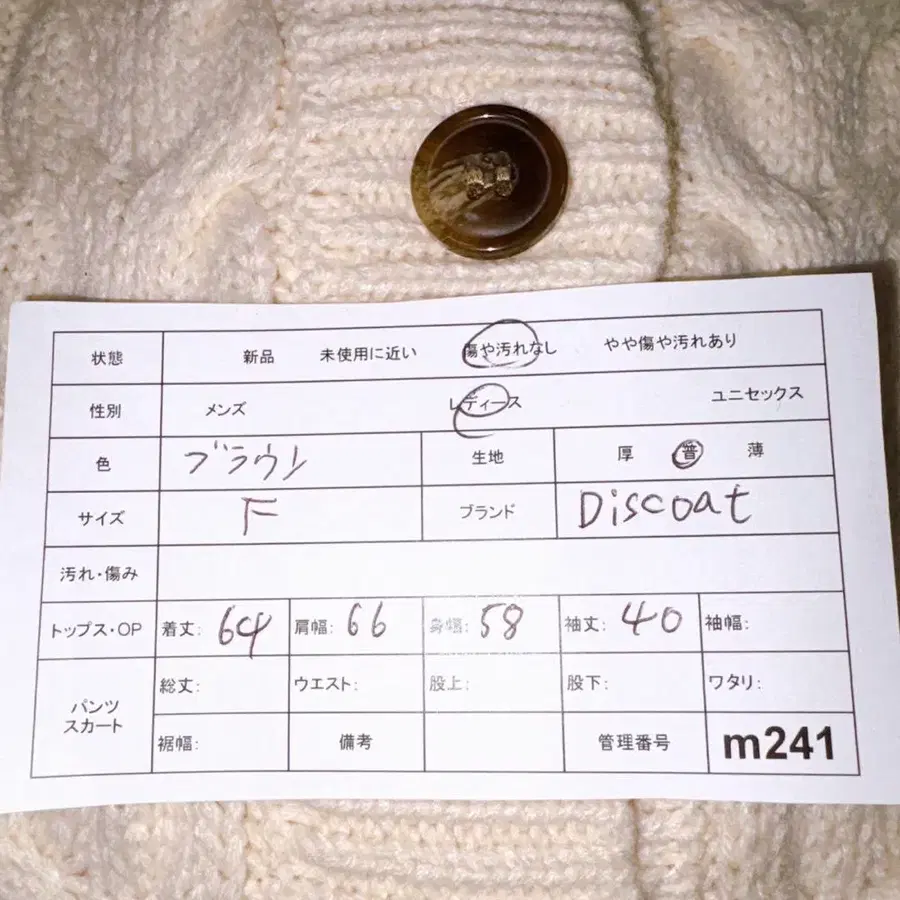 状態 新品 未使用に近い 傷や汚れなし やや傷や汚れあり
性別 メンズ レディース ユニセックス
色 ブラウン 生地 厚 普 薄
サイズ F ブランド Discoat
汚れ・傷み
トップス・OP 着丈: 64 肩幅: 66 身幅: 58 袖丈: 40 袖幅:
パンツ
スカート
総丈: ウエスト: 股上: 股下: ワタリ:
裾幅: 備考 管理番号 m241